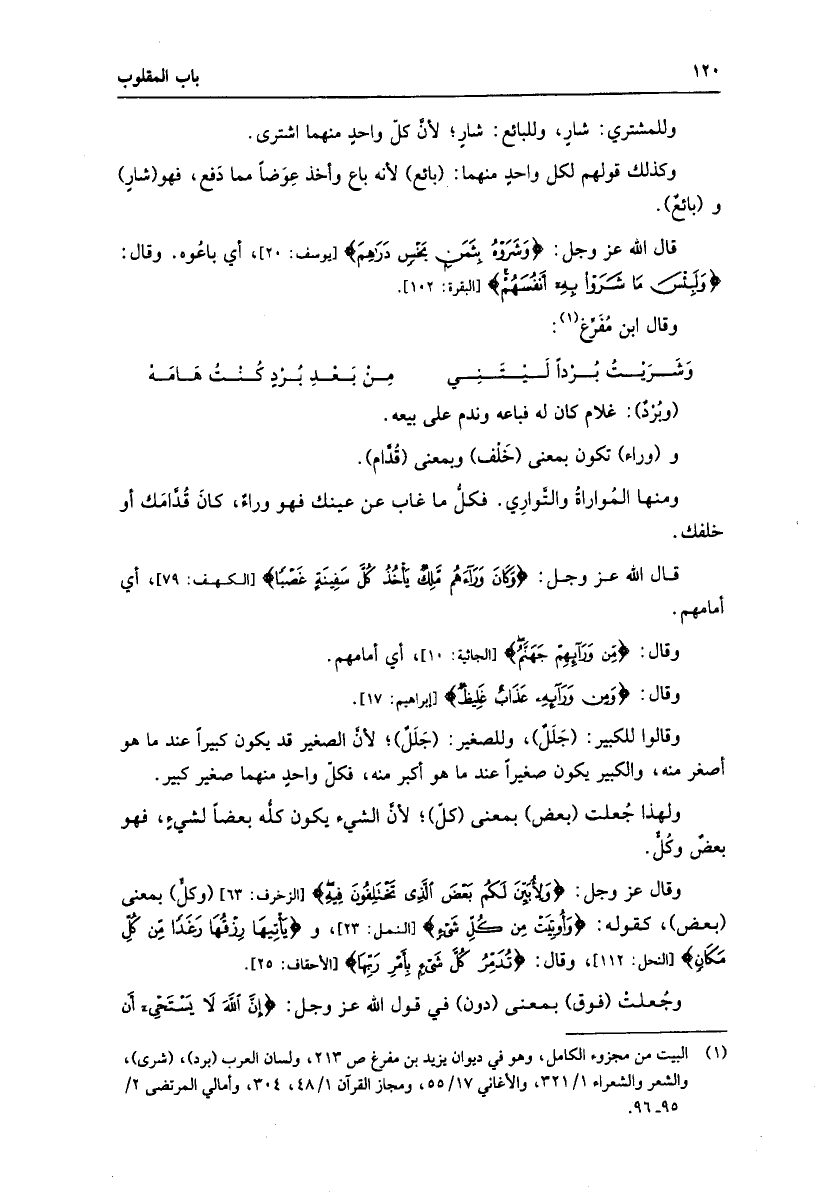 ١٢٠ باب المقلوب
وللمشتري: شارٍ، وللبائع: شارٍ؛ لأنَّ كلّ واحدٍ منهما اشترى.
وكذلك قولهم لكل واحدٍ منهما: (بائع) لأنه باع وأخذ عِوَضاً مما دَفع، فهو(شارٍ)
و (بائعٌ).
قال الله عز وجل: ﴿وَشَرَوْهُ بِثَمَنٍ بَخْسٍ دَرَاهِمَ﴾ [يوسف: ٢٠]، أي باعُوه. وقال:
﴿وَلَبِئْسَ مَا شَرَوْا بِهِۦٓ أَنفُسَهُمْ﴾ [البقرة: ١٠٢].
وقال ابن مُفَرِّغ(١):
وَشَــرَيْــتُ بُــرْداً لَــيْــتَــنِــي مِــنْ بَــعْــدِ بُــرْدٍ كُــنْــتُ هَــامَــهْ
(وبُرْدٌ): غلام كان له فباعه وندم على بيعه.
و (وراء) تكون بمعنى (خَلْف) وبمعنى (قُدَّام).
ومنها المُواراةُ والتَّوارِي. فكلُّ ما غاب عن عينك فهو وراءٌ، كانَ قُدَّامَك أو
خلفك.
قال الله عز وجل: ﴿وَكَانَ وَرَآءَهُم مَّلِكٌ يَأْخُذُ كُلَّ سَفِينَةٍ غَصْبًا﴾ [الكهف: ٧٩]، أي
أمامهم.
وقال: ﴿مِّن وَرَآئِهِمْ جَهَنَّمُ﴾ [الجاثية: ١٠]، أي أمامهم.
وقال: ﴿وَمِن وَرَآئِهِۦ عَذَابٌ غَلِيظٌ﴾ [إبراهيم: ١٧].
وقالوا للكبير: (جَلَلٌ)، وللصغير: (جَلَلٌ)؛ لأنَّ الصغير قد يكون كبيراً عند ما هو
أصغر منه، والكبير يكون صغيراً عند ما هو أكبر منه، فكلّ واحدٍ منهما صغير كبير.
ولهذا جُعلت (بعض) بمعنى (كلّ)؛ لأنَّ الشيء يكون كلُّه بعضاً لشيءٍ، فهو
بعضٌ وكُلٌّ.
وقال عز وجل: ﴿وَلِأُبَيِّنَ لَكُم بَعْضَ ٱلَّذِى تَخْتَلِفُونَ فِيهِ﴾ [الزخرف: ٦٣] (وكلٌّ) بمعنى
(بعض)، كقوله: ﴿وَأُوتِيَتْ مِن كُلِّ شَىْءٍ﴾ [النمل: ٢٣]، و ﴿يَأْتِيهَا رِزْقُهَا رَغَدًا مِّن كُلِّ
مَكَانٍ﴾ [النحل: ١١٢]، وقال: ﴿تُدَمِّرُ كُلَّ شَىْءٍ بِأَمْرِ رَبِّهَا﴾ [الأحقاف: ٢٥].
وجُعلتْ (فوق) بمعنى (دون) في قول الله عز وجل: ﴿إِنَّ ٱللَّهَ لَا يَسْتَحْىِۦٓ أَن
(١) البيت من مجزوء الكامل، وهو في ديوان يزيد بن مفرغ ص ٢١٣، ولسان العرب (برد)، (شرى)،
والشعر والشعراء ١/ ٣٢١، والأغاني ١٧/ ٥٥، ومجاز القرآن ١/ ٤٨، ٣٠٤، وأمالي المرتضى ٢/
٩٥ـ٩٦.